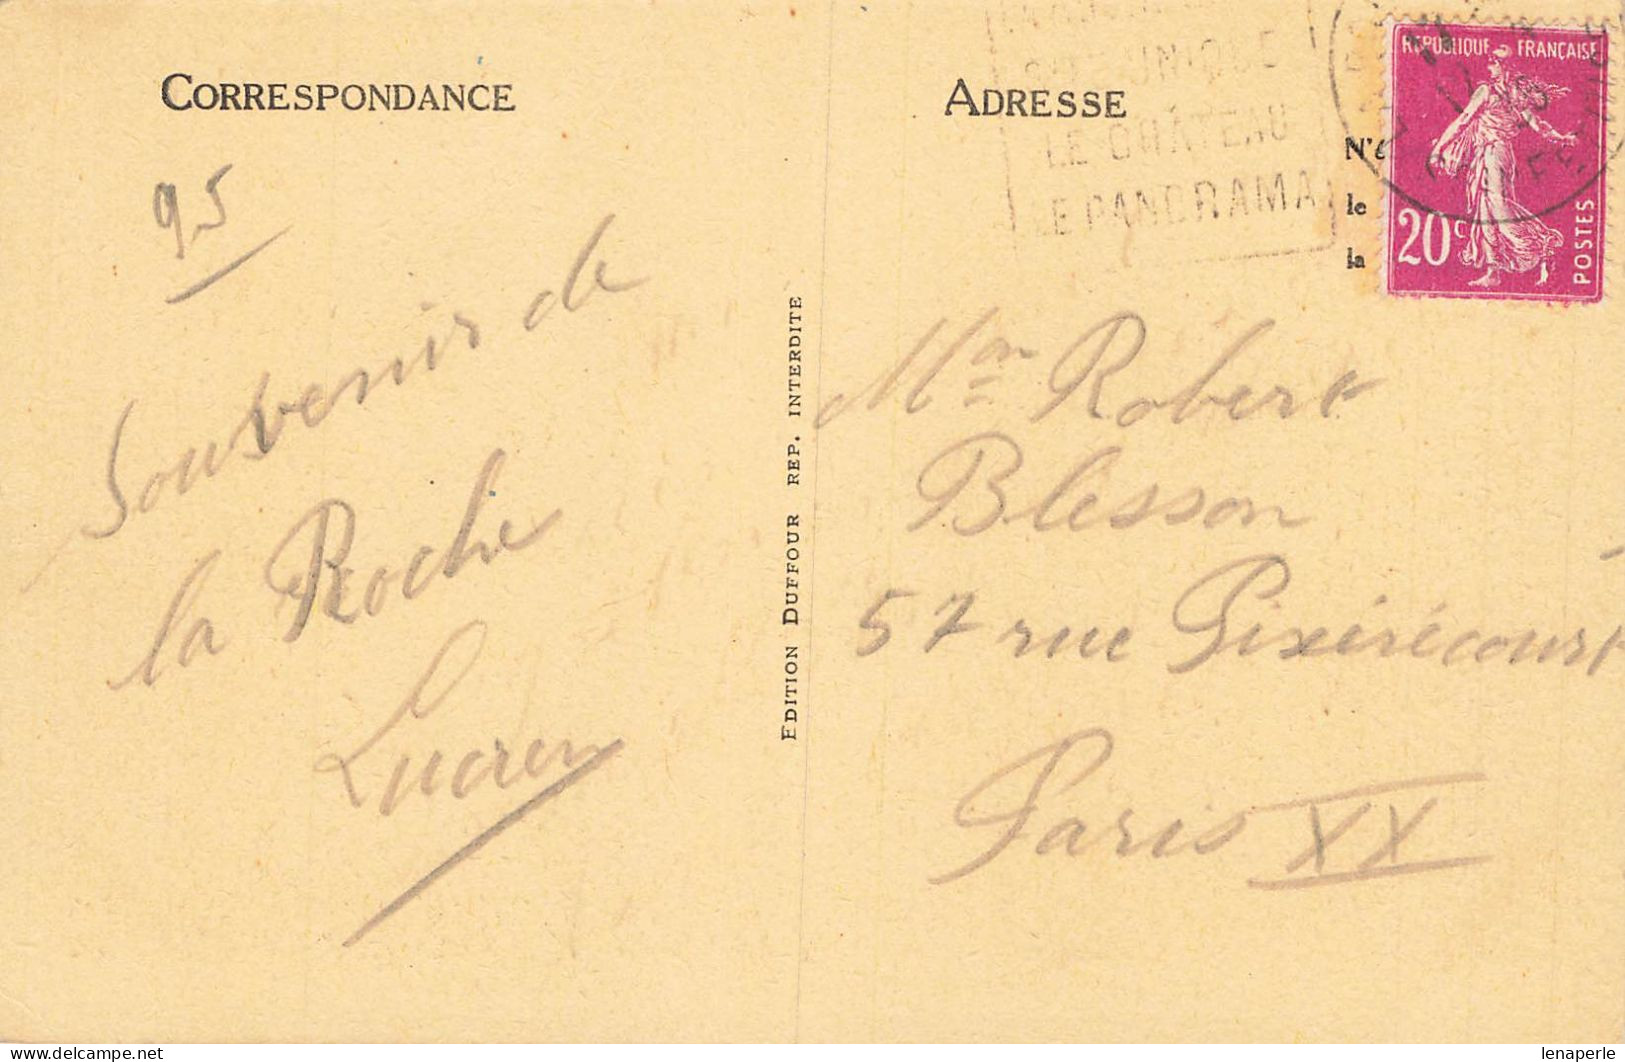 CORRESPONDANCE
95
Souvenir de
la Roche
Lucien
EDITION DUFFOUR REP. INTERDITE
ADRESSE
UNIQUE
LE CHÂTEAU
LE PANORAMA
N'é
le
la
REPUBLIQUE FRANÇAISE
20c
POSTES
Mon Robert
Blesson
57 rue Pixérécourt
Paris XX
lenaperle